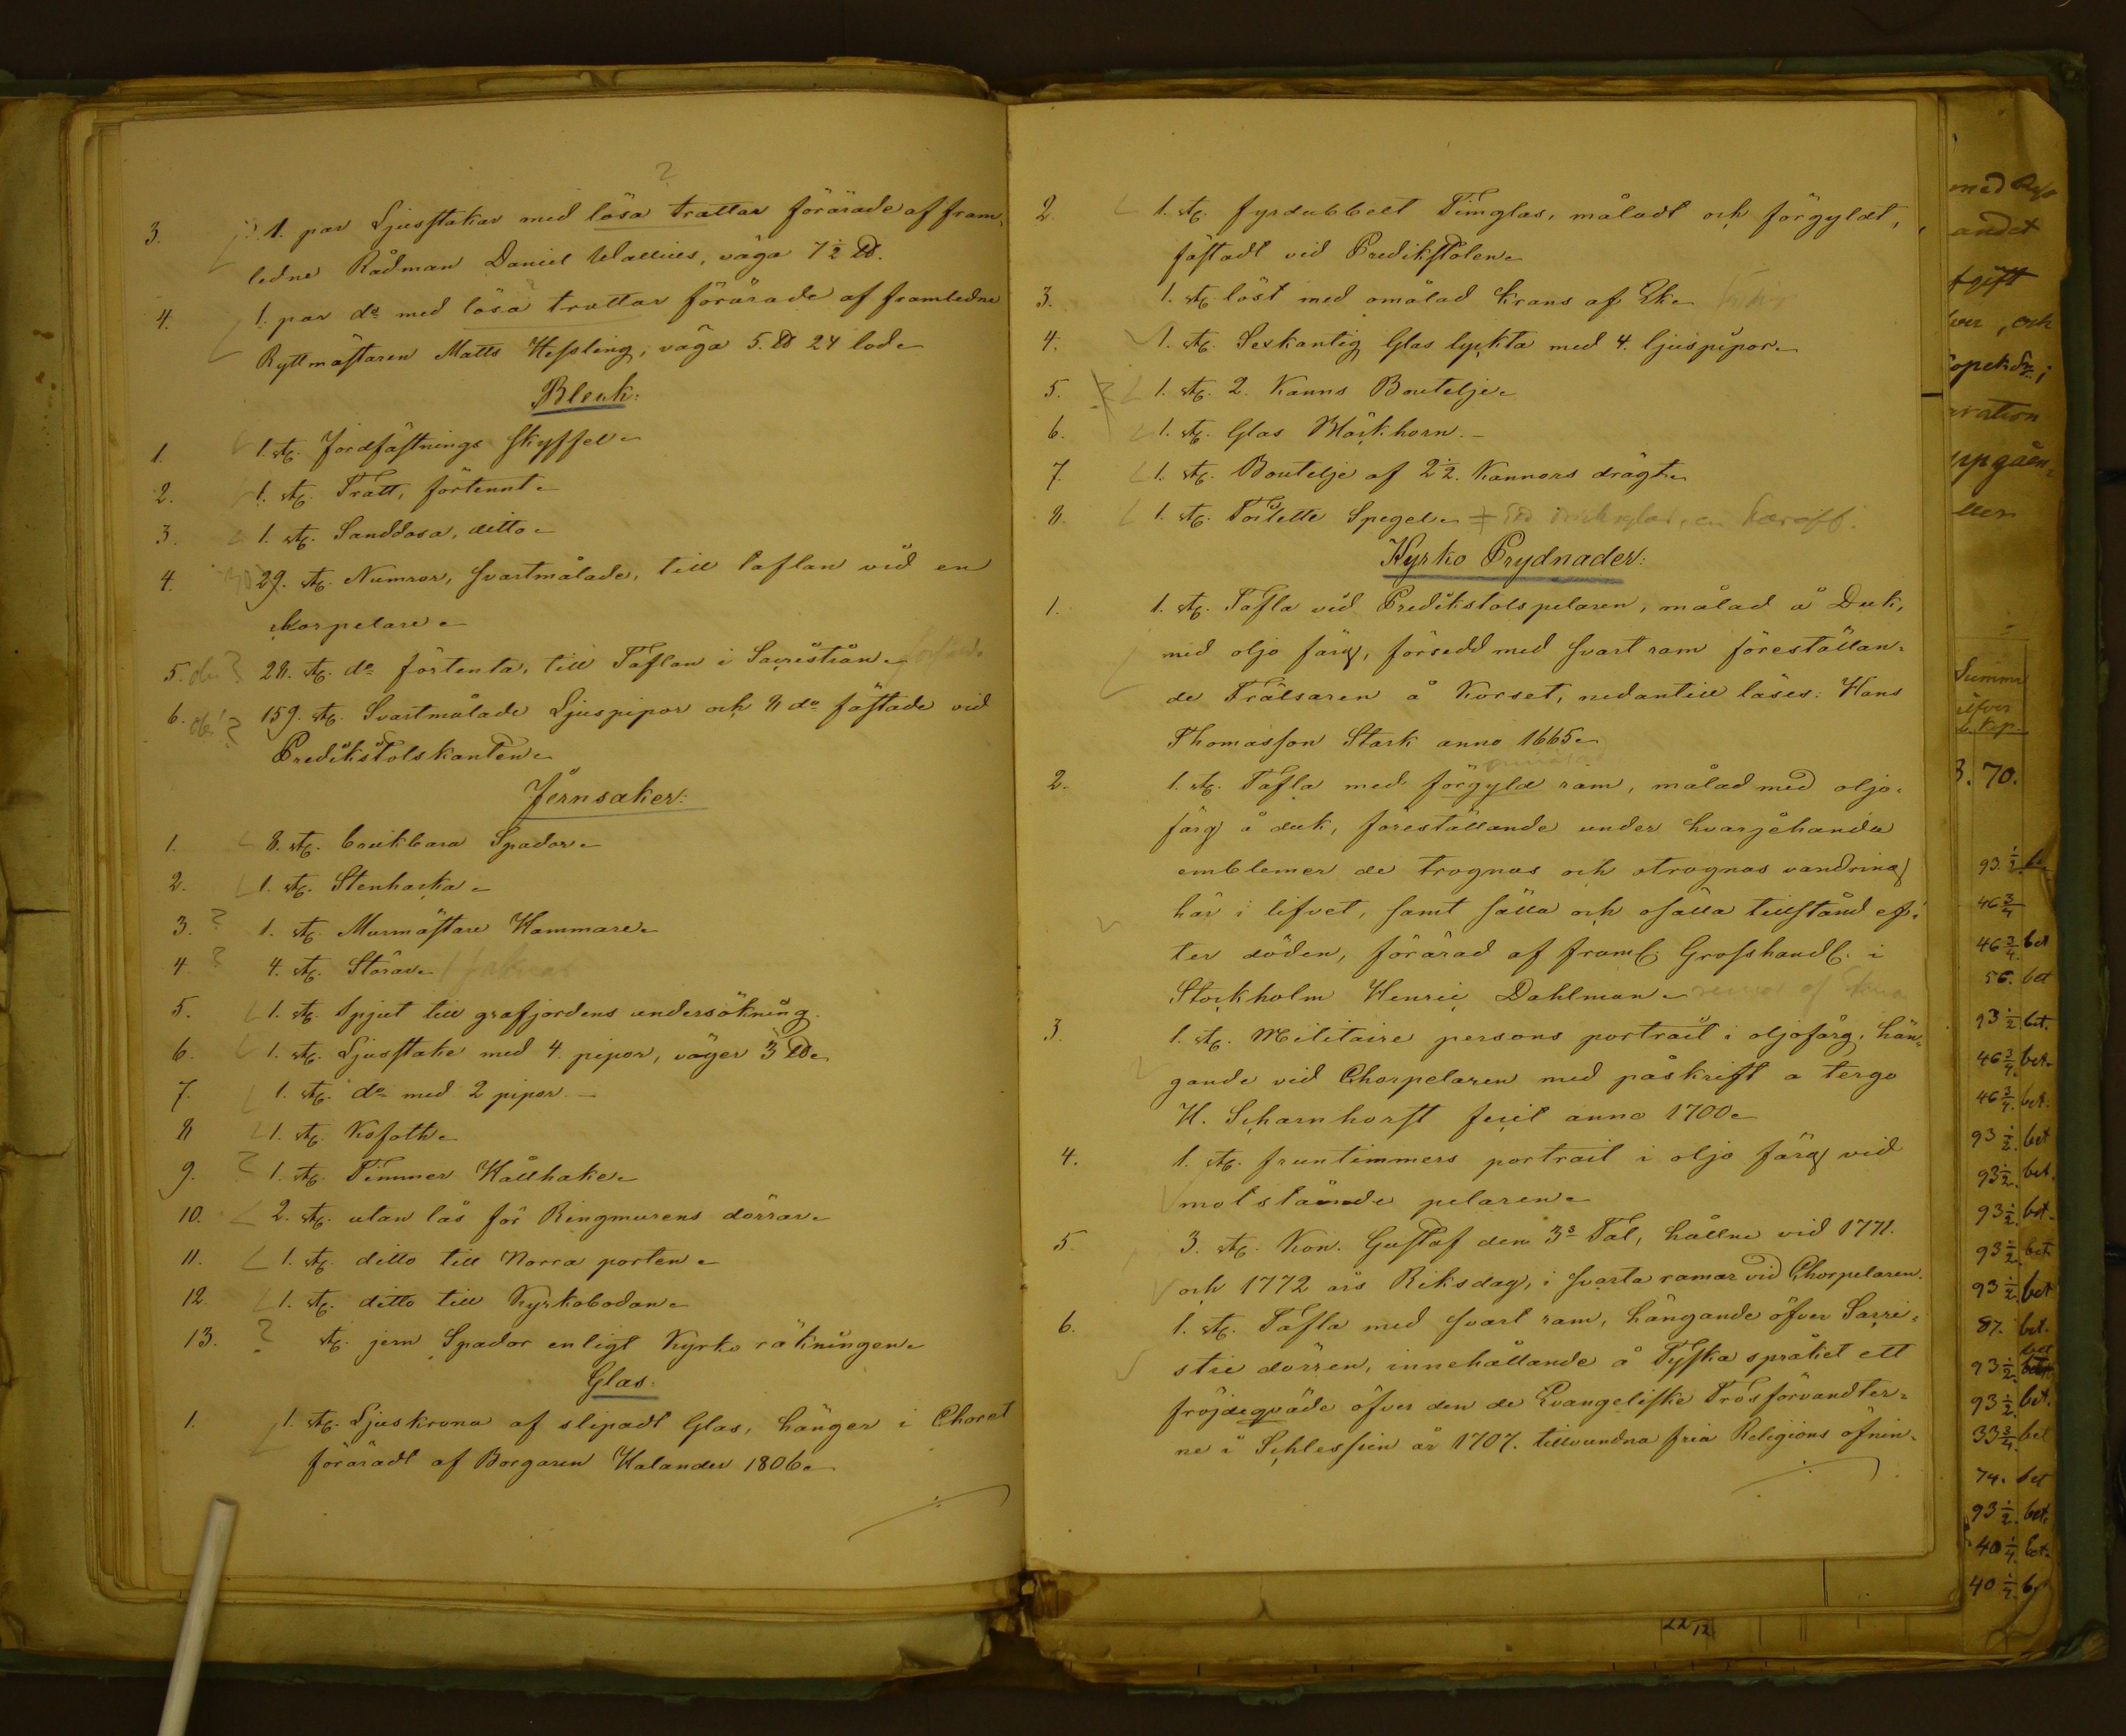 ?
3. 1. par Ljusstakar med lösa trattar förärade af fram-
ledne Rådman Daniel Wallius, väga 7½ ℔.
4. 1. par do med lösa trattar förärade af framledne
Ryttmästaren Matts Hessling, väga 5. ℔ 24 lod.
Bleck:
1. 1. st. Jordfästnings skyffel.
2. 1. st. Tratt, förtennt.
3. 1. st. Sanddosa, ditto.
4. 30 29. st. Numror, svartmålade, till taflan vid en
korpelare.
5. ? 28. st. do förtenta, till Taflan i Sacristian.
6. ? 159. st. Svartmålade Ljuspipor och 8 do fästade vid
Predikstolskanten.
Jernsaker:
1. 8. st. brukbara Spador.
2. 1. st. Stenhacka.
3. ? 1. st. Murmästare Hammare.
4. ? 4. st. Störar.
5. 1. st. Spjut till grafjordens undersökning.
6. 1. st. Ljusstake med 4. pipor, väger 3 ℔.
7. 1. st. do med 2 pipor.
8 1. st. Kofoth.
9. ? 1. st. Timmer Hållhake.
10. 2. st. utan lås för Ringmurens dörrar.
11. 1. st. ditto till Norra porten.
12. 1. st. ditto till Kyrkobodan.
13. ? st. jern Spador enligt Kyrko räkningen.
Glas.
1. 1. st. Ljuskrona af slipadt Glas, hänger i Choret
föräradt af Borgaren Kalander 1806.
2. 1. st. fyrdubbelt Timglas, måladt och förgyldt,
fästadt vid Predikstolen.
3. 1. st. löst med omålad krans af Ek.
4. 1. st. Sexkantig Glas lyckta med 4. ljuspipor.
5. ? 1. st. 2. Kanns Boutelje.
6. 1. st. Glas Bläckhorn.
7. 1. st. Boutelje af 2½. Kannors drägt.
8. 1. st. Toilette Spegel. en karaff.
Kyrko Prydnader:
1. 1. st. Tafla vid Predikstolspelaren, målad å Duk,
med oljo färg, försedd med svart ram föreställan-
de Frälsaren å Korset, nedantill läses: Hans
Thomasson Stark anno 1665.
2. 1. st. Tafla med förgyld ram, målad med oljo-
färg å duk, föreställande under hvarjehanda
emblemer de trognas och otrognas vandring
här i lifvet, samt sälla och osälla tillstånd ef-
ter döden, förärad af framl. Grosshandl. i
Stockholm Henric Dahlman.
3. 1. st. Militaire persons portrait i oljofärg, hän-
gande vid Chorpelaren med påskrift a tergo
H. Scharnhorst fecit anno 1700.
4. 1. st. fruntimmers portrait i oljo färg vid
motstående pelaren.
5. 3. st. Kon. Gustaf den 3s Tal, hållne vid 1771.
och 1772 års Riksdag, i svarta ramar vid Chorpelaren.
6. 1. st. Tafla med svart ram, hängande öfver Sacri-
stie dörren, innehållande å Tyska språket ett
fröjdeqväde öfver den de Evangeliske Trosförvandter-
ne i Schlessien år 1707. tillvundna fria Religions öfnin-
med
andet
och
uppgåen-
Summa
3. 70.
93½
46¾
46¾ bet
56. bet
93½ bet.
46¾ bet.
46¾ bet.
93½ bet
93½ bet.
93½ bet.
93½ bet
93½ bet
87. bet.
93½ bet
93½ bet.
33¾ bet
74. bet
93½ bet.
40¼ bet.
40¼
22/12